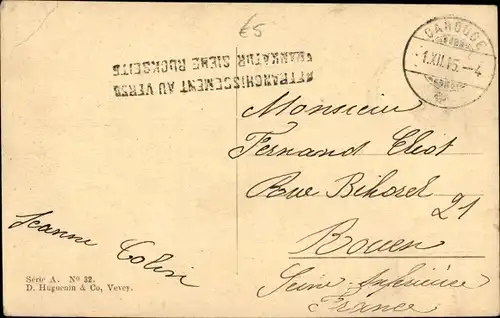 €5
CAROUGE
1.XII.15.-4
AFFRANCHISSEMENT AU VERSO
FRANKATUR SIEHE RÜCKSEITE
Monsieur
Fernand Eliot
Rue Bihorel
21
Rouen
Seine-Inférieure
France
Jeanne Colin
Série A. Nº 32.
D. Huguenin & Co, Vevey.